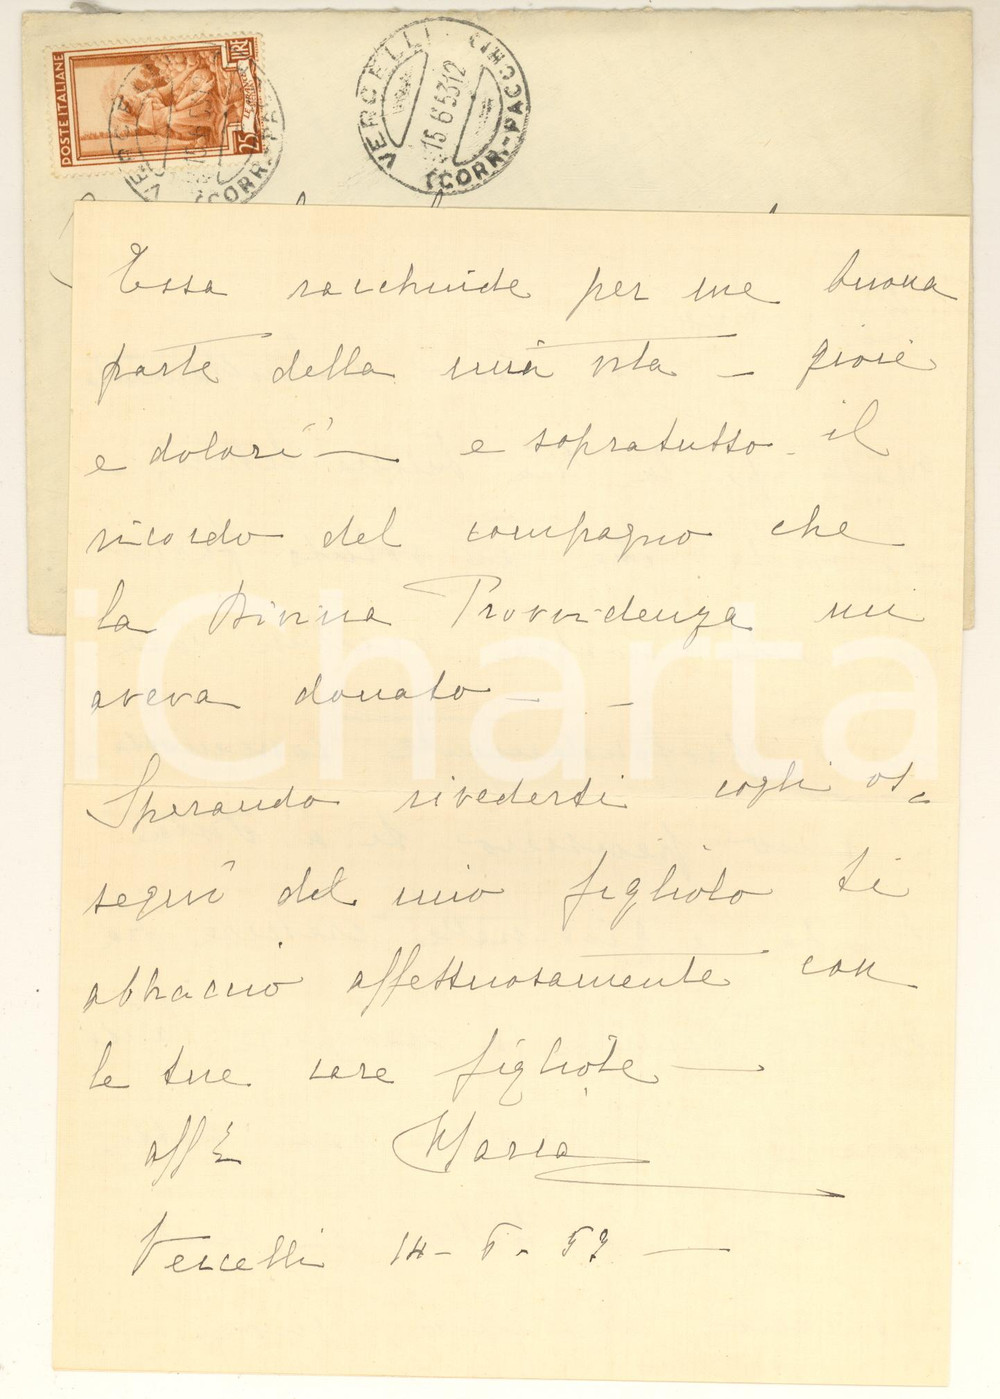 POSTE ITALIANE
LIRE 25
VERCELLI
CORR.-PACCHI
15 6 53 12
VERCELLI
CORR.-PACCHI
Essa racchiude per me buona
parte della mia vita – gioie
e dolori – e sopratutto il
ricordo del compagno che
la Divina Provvidenza mi
aveva donato –
Sperando rivederti cogli os-
sequi del mio figliolo ti
abbraccio affettuosamente con
le tue care figliole –
aff. Maria
Vercelli 14 – 6 – 53 –
iCharta